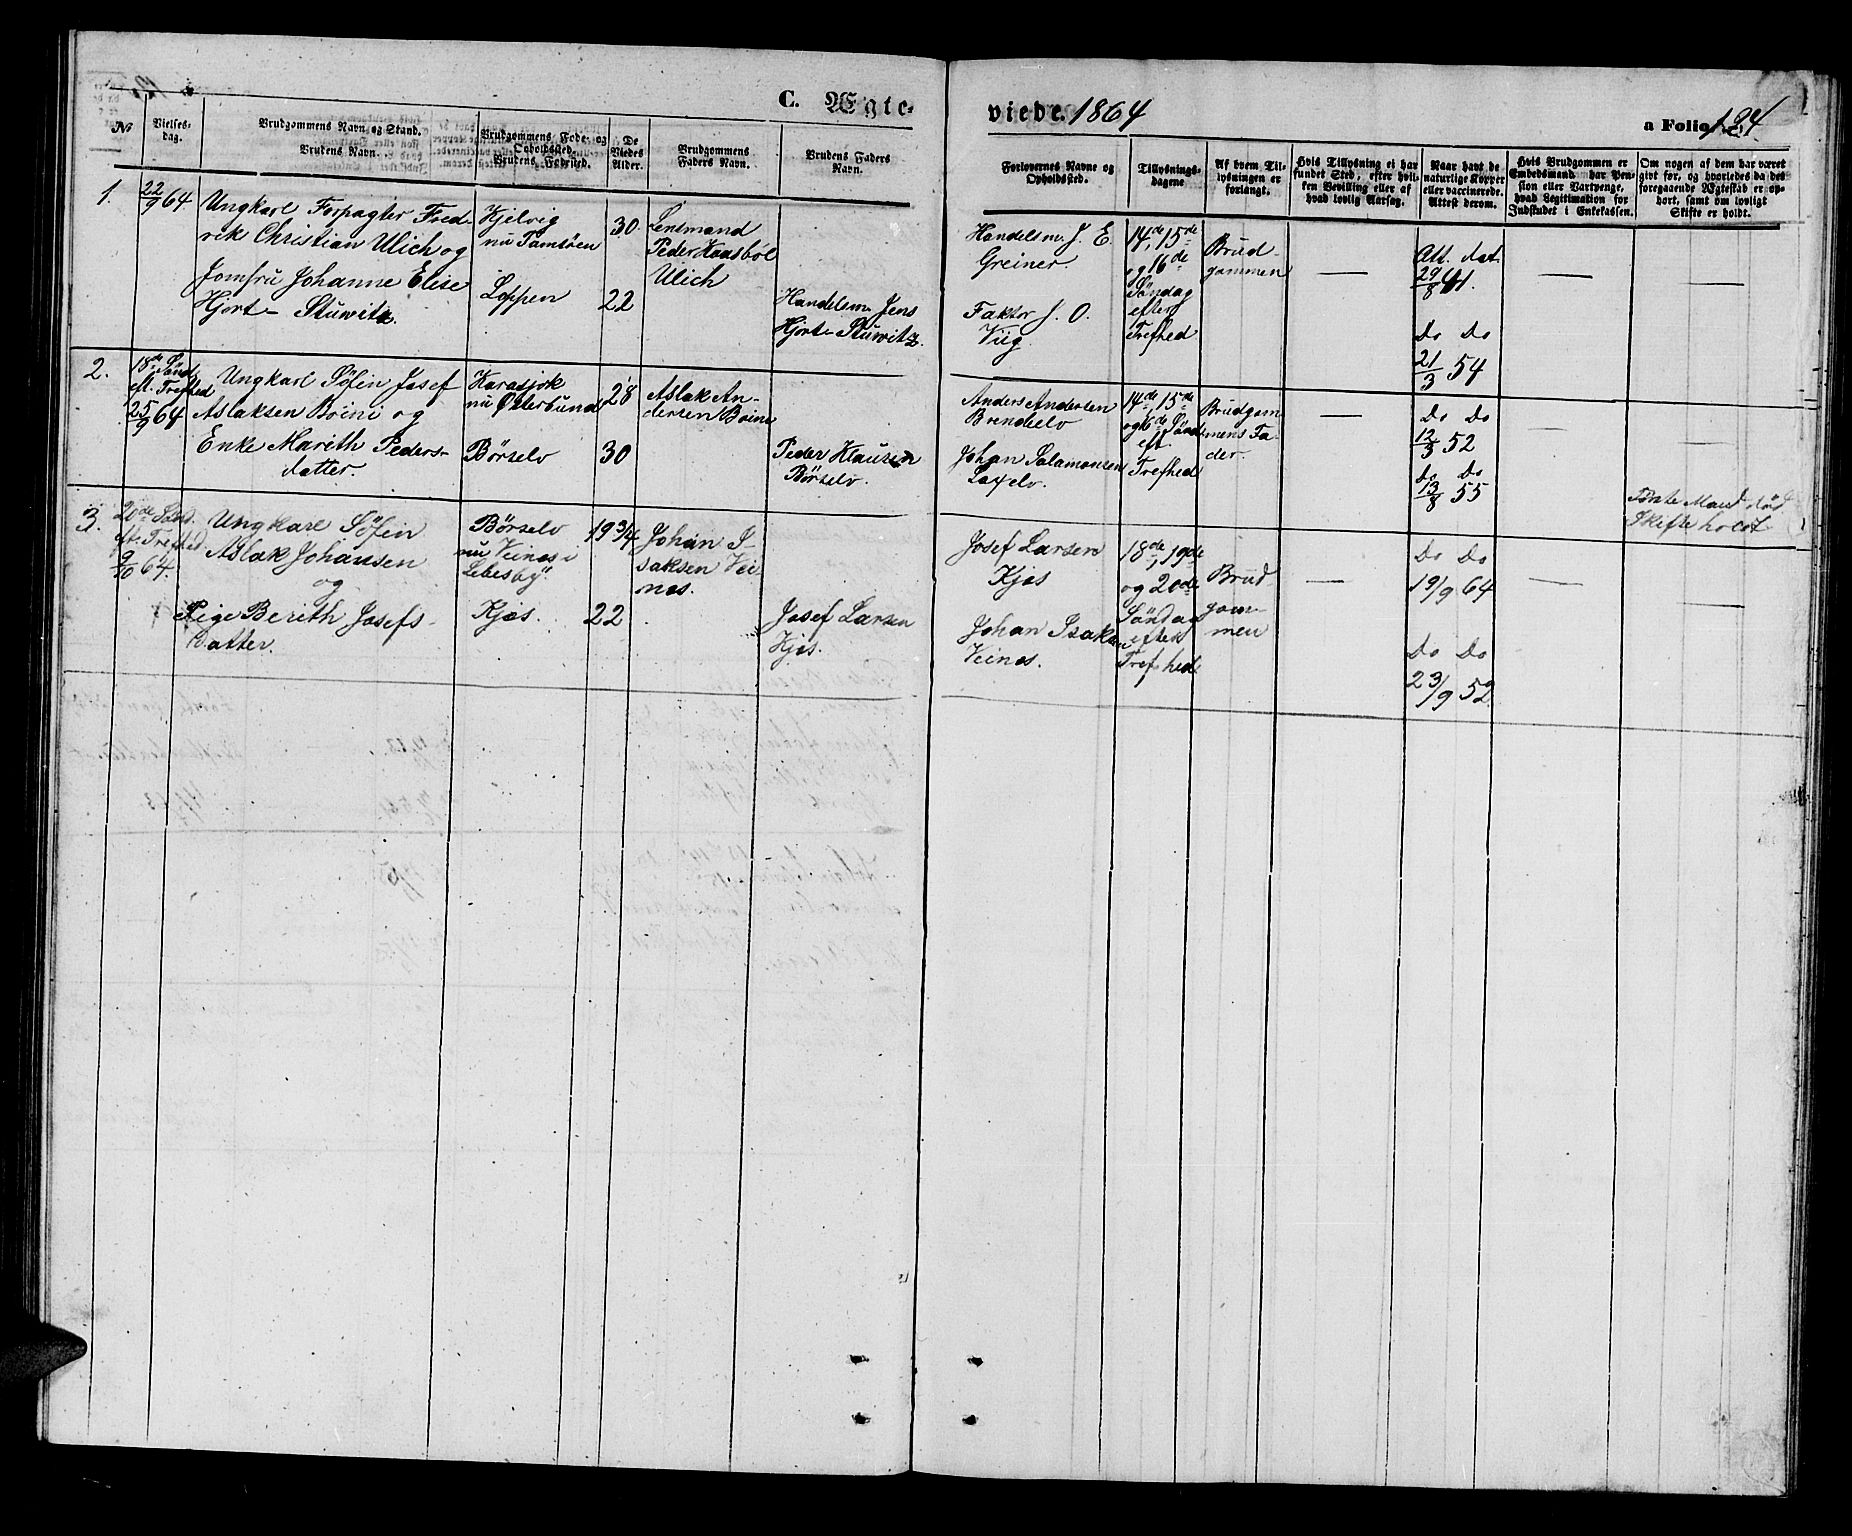 C. Ægte-
viede. 1864
a Folio 124
No
Vielses-
dag.
Brudgommens Navn og Stand.
Brudens Navn.
Brudgommens Føde- og
Opholdssted.
Brudens Fødested.
De
Viedes
Alder.
Brudgommens
Faders Navn.
Brudens Faders
Navn.
Forlovernes Navne og
Opholdssted.
Tillysnings-
dagene
Af hvem Til-
lysningen er
forlangt.
Hvis Tillysning ei har
fundet Sted, efter hvil-
ken Bevilling eller af
hvad lovlig Aarsag.
Naar havt de
naturlige Kopper
eller vaccinerede.
Attest derom.
Hvis Brudgommen er
Embedsmand, har Pen-
sion eller Vartpenge,
hvad Legitimation for
Indskudet i Enkekassen.
Om nogen af dem har været
gift før, og hvorledes da det
foregaaende Ægteskab er op-
hørt, samt om lovligt
Skifte er holdt.
1.
22/9 64.
Ungkarl Forpagter Fred-
rik Christian Ulich og
Jomfru Johanne Elise
Hjort-Stuwitz.
Kjelvig
nu Tamsøen
Loppen
30
22
Lensmand
Peder Kaasbøl
Ulich
Handelsm. Jens
Hjort-Stuwitz.
Handelsm. J. E.
Greiner.
Faktor J. O.
Viig.
14de, 15de
og 16de
Søndag
efter
Trefhed
Brud
gommen
Att. dat.
29/8 41.
Do Do
21/3 54
2.
18de Sønd
eft. Trefhed
25/9 64
Ungkarl Søfin Josef
Aslaksen Boini og
Enke Marith Peders-
datter.
Karasjok
nu Østerbund
Børselv
28
30
Aslak An-
dersen Boini
Peder Klausen
Børselv.
Anders Andersen
Brendelv
Johan Salamonsen
Laxelv.
14de, 15de
og 16de Sønd
eft
Trefhed
Brudgom-
mens Fa-
der-
Do Do
12/3 52
Do Do
13/8 55
Første Mand død
Skifte holdt
3.
20de Sønd.
eft. Trefhed
9/10 64.
Ungkarl Søfin
Aslak Johansen
og
Pige Berith Josefs-
datter.
Børselv
nu Veines i
Lebesby
Kjæs.
19 3/4
22
Johan I-
saksen Vei-
nes.
Josef Larsen
Kjæs.
Josef Larsen
Kjæs
Johan Isaksen
Veines.
18de, 19de
og 20de
Søndag
efter
Trefhed
Brud
gom-
men
Do Do
19/9 64
Do Do
23/9 52